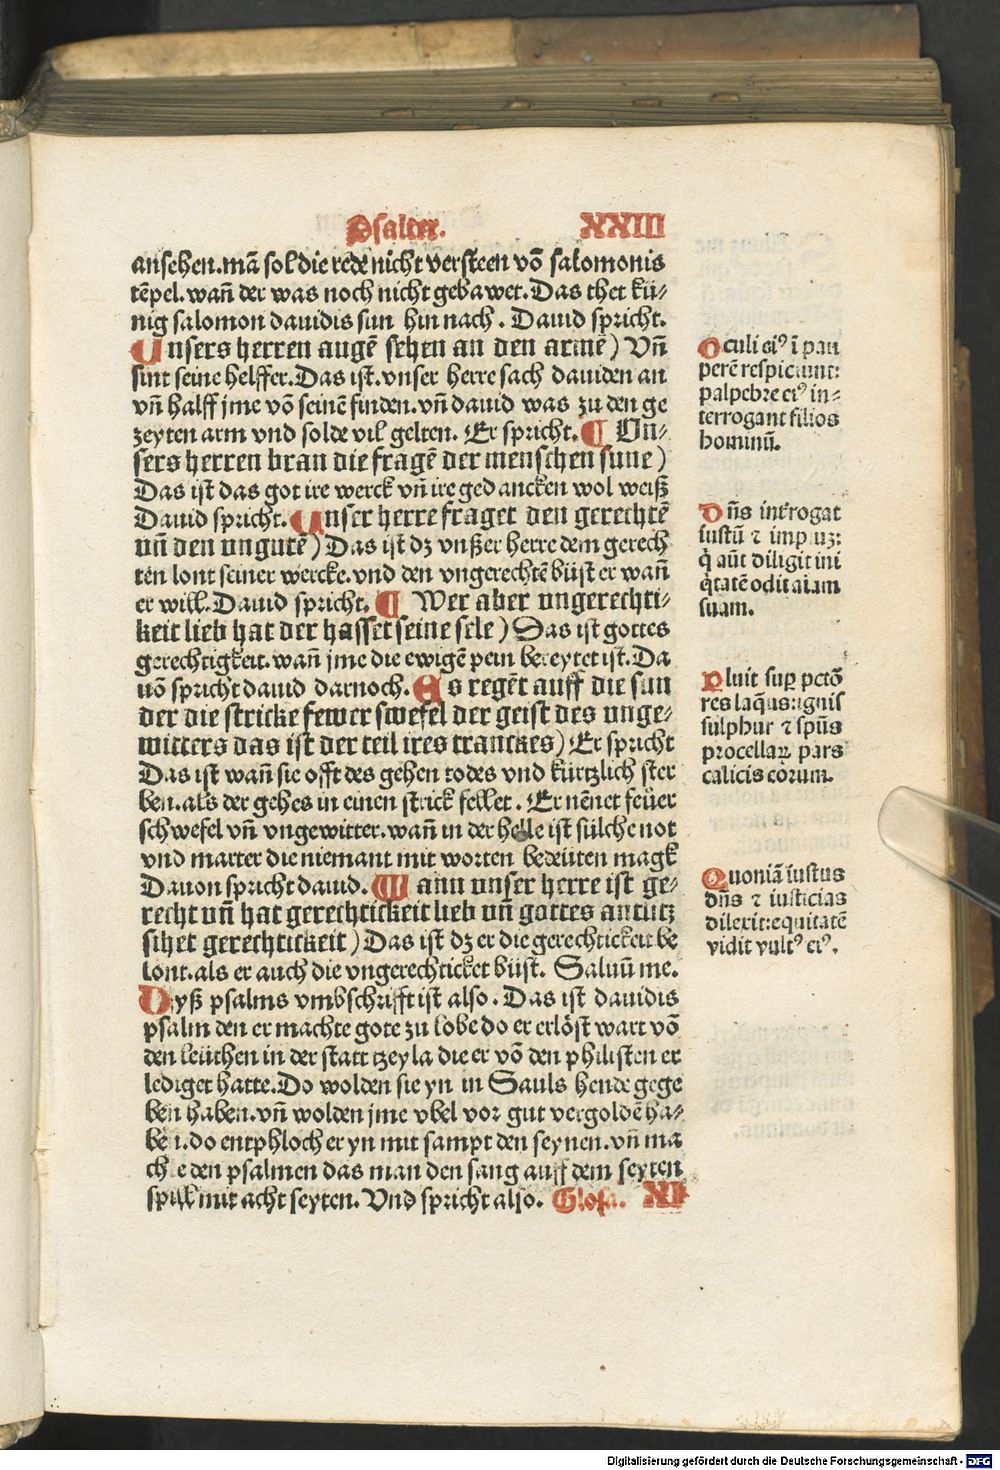 Psalter. XXIII
ansehen.mā sol die rede nicht versteen vō salomonis
tēpel.wañ der was noch nicht gebawet.Das thet kü⸗
nig salomon dauidis sun hin nach. Dauid spricht.
Unsers herren augē sehen an den armē) Vñ
sint seine helffer.Das ist.vnser herre sach dauiden an
vñ halff jme vō seinē finden.vñ dauid was zu den ge
zeyten arm vnd solde vil gelten. Er spricht.¶ Un⸗
sers herren bran die fragē der menschen sune)
Das ist das got ire werck vñ ire gedancken wol weiß
Dauid spricht. Unser herre fraget den gerechtē
uñ den ungutē) Das ist dz vnßer herre dem gerech
ten lont seiner wercke.vnd den vngerechtē büst er wañ
er will.Dauid spricht.¶ Wer aber ungerechti⸗
keit lieb hat der hasset seine sele) Das ist gottes
gerechtigkeit.wañ jme die ewigē pein bereytet ist.Da
uō spricht dauid darnoch. Es regēt auff die sun
der die stricke fewer swefel der geist des unge⸗
witters das ist der teil ires tranckes) Er spricht
Das ist wañ sie offt des gehen todes vnd kürtzlich ster
ben.als der gehes in einen strick fellet. Er nēnet feüer
schwefel vñ vngewitter.wañ in der helle ist sülche not
vnd marter die niemant mit worten bedeüten magk
Dauon spricht dauid. Wann unser herre ist ge⸗
recht uñ hat gerechtickeit lieb uñ gottes antlitz
sihet gerechtickeit) Das ist dz er die gerechtickeit be
lont.als er auch die vngerechticket büst. Saluū me.
Dyß psalms vmbschrifft ist also. Das ist dauidis
psalm den er machte gote zu lobe do er erlöst wart vō
den leüthen in der statt tzeyla die er vō den philisten er
lediget hatte.Do wolden sie yn in Sauls hende gege
ben haben.vñ wolden jme vbel vor gut vergoldē ha⸗
bē i.do entphloch er yn mit sampt den seynen.vñ ma
ch e den psalmen das man den sang auff dem seyten
spill mit acht seyten. Vnd spricht also. Glosa. XI
Oculi ei⁹ ī pau
perē respiciunt:
palpebre ei⁹ in⸗
terrogant filios
hominū.
Dñs interrogat
iustū ⁊ impiuz:
q̄ aūt diligit ini
q̄tatē odit aīam
suam.
Pluit sup̄ pctō
res laq̄us:ignis
sulphur ⁊ spūs
procellaꝝ pars
calicis eorum.
Quoniā iustus
dñs ⁊ iusticias
dilexit:equitatē
vidit vult⁹ ei⁹.
Digitalisierung gefördert durch die Deutsche Forschungsgemeinschaft - DFG